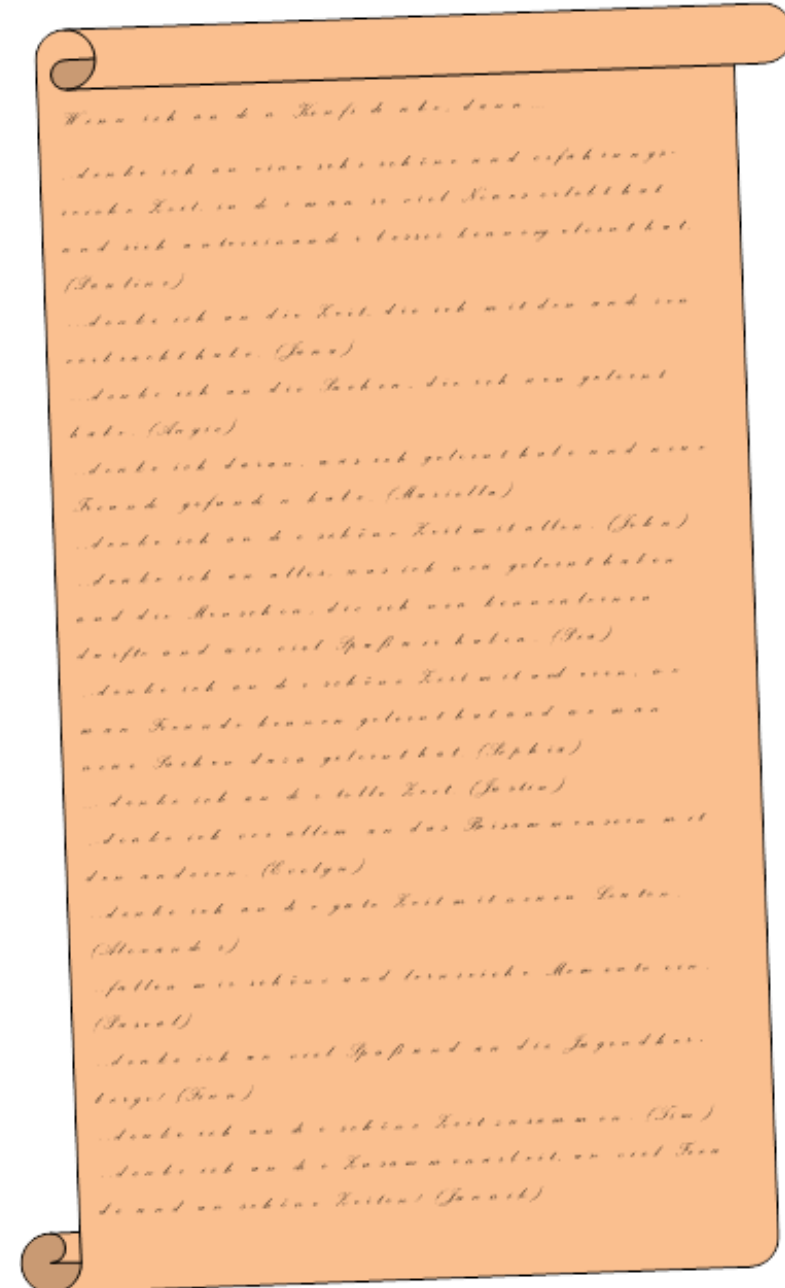 Wenn ich an den Konfi denke, dann...
...denke ich an eine sehr schöne und erfahrungs-
reiche Zeit, in der man so viel Neues erlebt hat
und sich untereinander besser kennengelernt hat.
(Pauline)
...denke ich an die Zeit, die ich mit den anderen
verbracht habe. (Jana)
...denke ich an die Sachen, die ich neu gelernt
habe. (Angie)
...denke ich daran, was ich gelernt habe und neue
Freunde gefunden habe. (Mariella)
...denke ich an die schöne Zeit mit allen. (John)
...denke ich an alles, was ich neu gelernt haben
und die Menschen, die ich neu kennenlernen
durfte und wie viel Spaß wir haben. (Pia)
...denke ich an die schöne Zeit mit anderen, wo
man Freunde kennen gelernt hat und wo man
neue Sachen dazu gelernt hat. (Sophia)
... denke ich an die tolle Zeit (Justin)
...denke ich vor allem an das Beisammensein mit
den anderen. (Evelyn)
...denke ich an die gute Zeit mit neuen Leuten.
(Alexander)
...fallen mir schöne und lernreiche Momente ein.
(Pascal)
...denke ich an viel Spaß und an die Jugendher-
berge! (Finn)
...denke ich an die schöne Zeit zusammen. (Tim)
...denke ich an die Zusammenarbeit, an viel Freu
de und an schöne Zeiten! (Janosch)